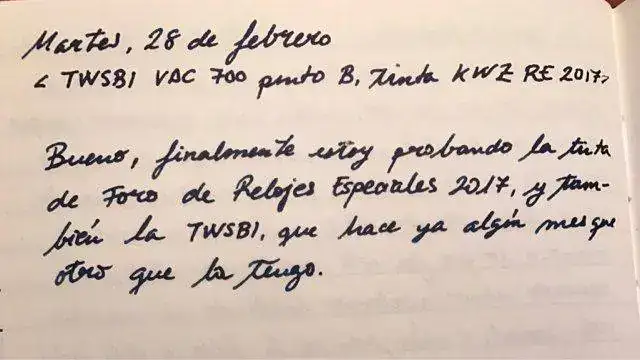 Martes, 28 de febrero
< TWSBI VAC 700 punto B, tinta KWZ RE 2017>
Bueno, finalmente estoy probando la tinta
de Foro de Relojes Especiales 2017, y tam-
bién la TWSBI, que hace ya algún mes que
otro que la tengo.